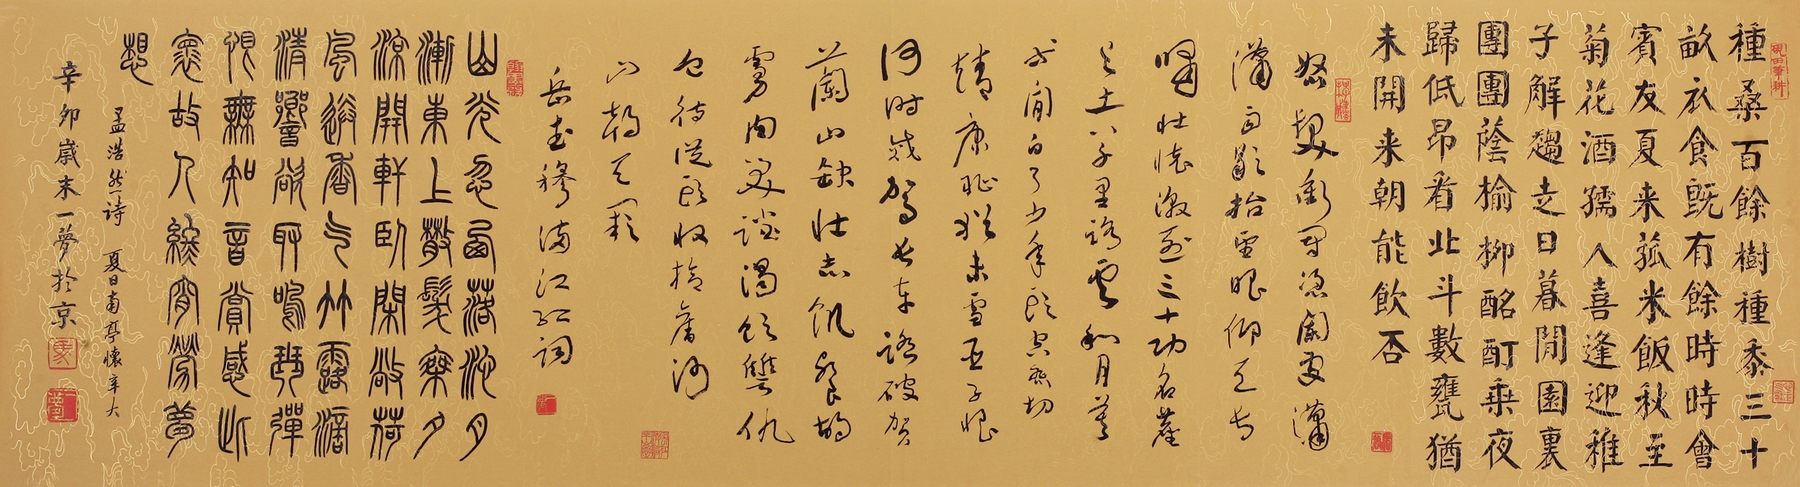 種桑百餘樹種黍三十
畝衣食既有餘時時會
賓友夏来菰米飯秋至
菊花酒孺人喜逢迎稚
子解趨走日暮閒園裏
團團蔭榆柳酩酊乗夜
歸低昂看北斗數甕猶
未開来朝能飲否
怒髮衝冠憑闌處瀟
瀟雨歇抬望眼仰天長
嘯壯懷激烈三十功名塵
與土八千里路雲和月莫
等閒白了少年頭空悲切
靖康恥猶未雪臣子恨
何時滅駕長車踏破賀
蘭山缺壯志飢餐胡
虜肉笑談渴飲仇
血待從頭收拾舊河
山朝天闕
岳武穆滿江紅詞
山光忽西落池月
漸東上散髮乘夕
涼開軒臥閑敞荷
風送香气竹露滴
清響欲取鳴琴彈
恨無知音賞感此
懷故人終宵勞夢
想
孟浩然詩 夏日南亭懷辛大
辛卯歲末一夢於京